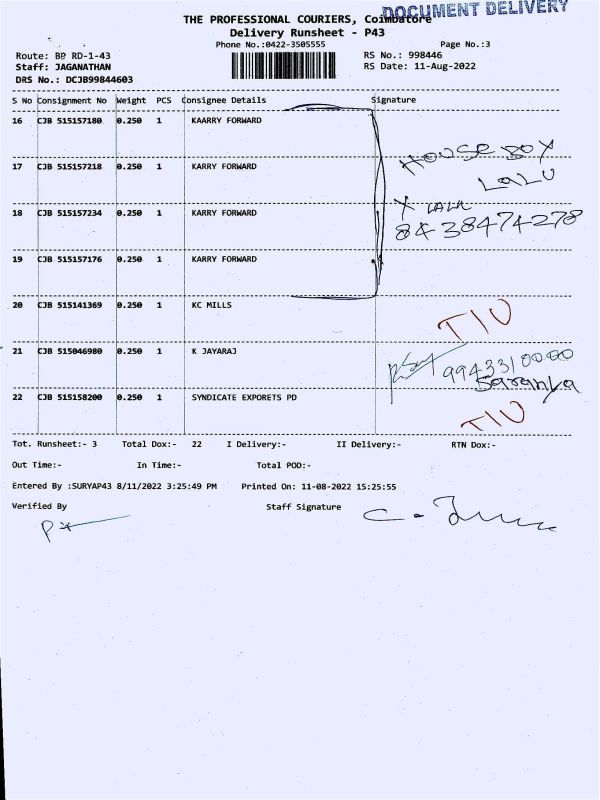 DOCUMENT DELIVERY
THE PROFESSIONAL COURIERS, Coimbatore
Delivery Runsheet - P43
Phone No.:0422-3505555 Page No.:3
Route: BP RD-1-43 RS No.: 998446
Staff: JAGANATHAN RS Date: 11-Aug-2022
DRS No.: DCJB99844603
S No Consignment No Weight PCS Consignee Details Signature
16 CJB 515157180 0.250 1 KAARRY FORWARD
HOUSE BOY
17 CJB 515157218 0.250 1 KARRY FORWARD
LALU
X LALU
18 CJB 515157234 0.250 1 KARRY FORWARD
8438474278
19 CJB 515157176 0.250 1 KARRY FORWARD
20 CJB 515141369 0.250 1 KC MILLS
TIU
21 CJB 515046980 0.250 1 K JAYARAJ
9943310000
Saranya
22 CJB 515158200 0.250 1 SYNDICATE EXPORETS PD
TIU
Tot. Runsheet:- 3 Total Dox:- 22 I Delivery:- II Delivery:- RTN Dox:-
Out Time:- In Time:- Total POD:-
Entered By :SURYAP43 8/11/2022 3:25:49 PM Printed On: 11-08-2022 15:25:55
Verified By Staff Signature